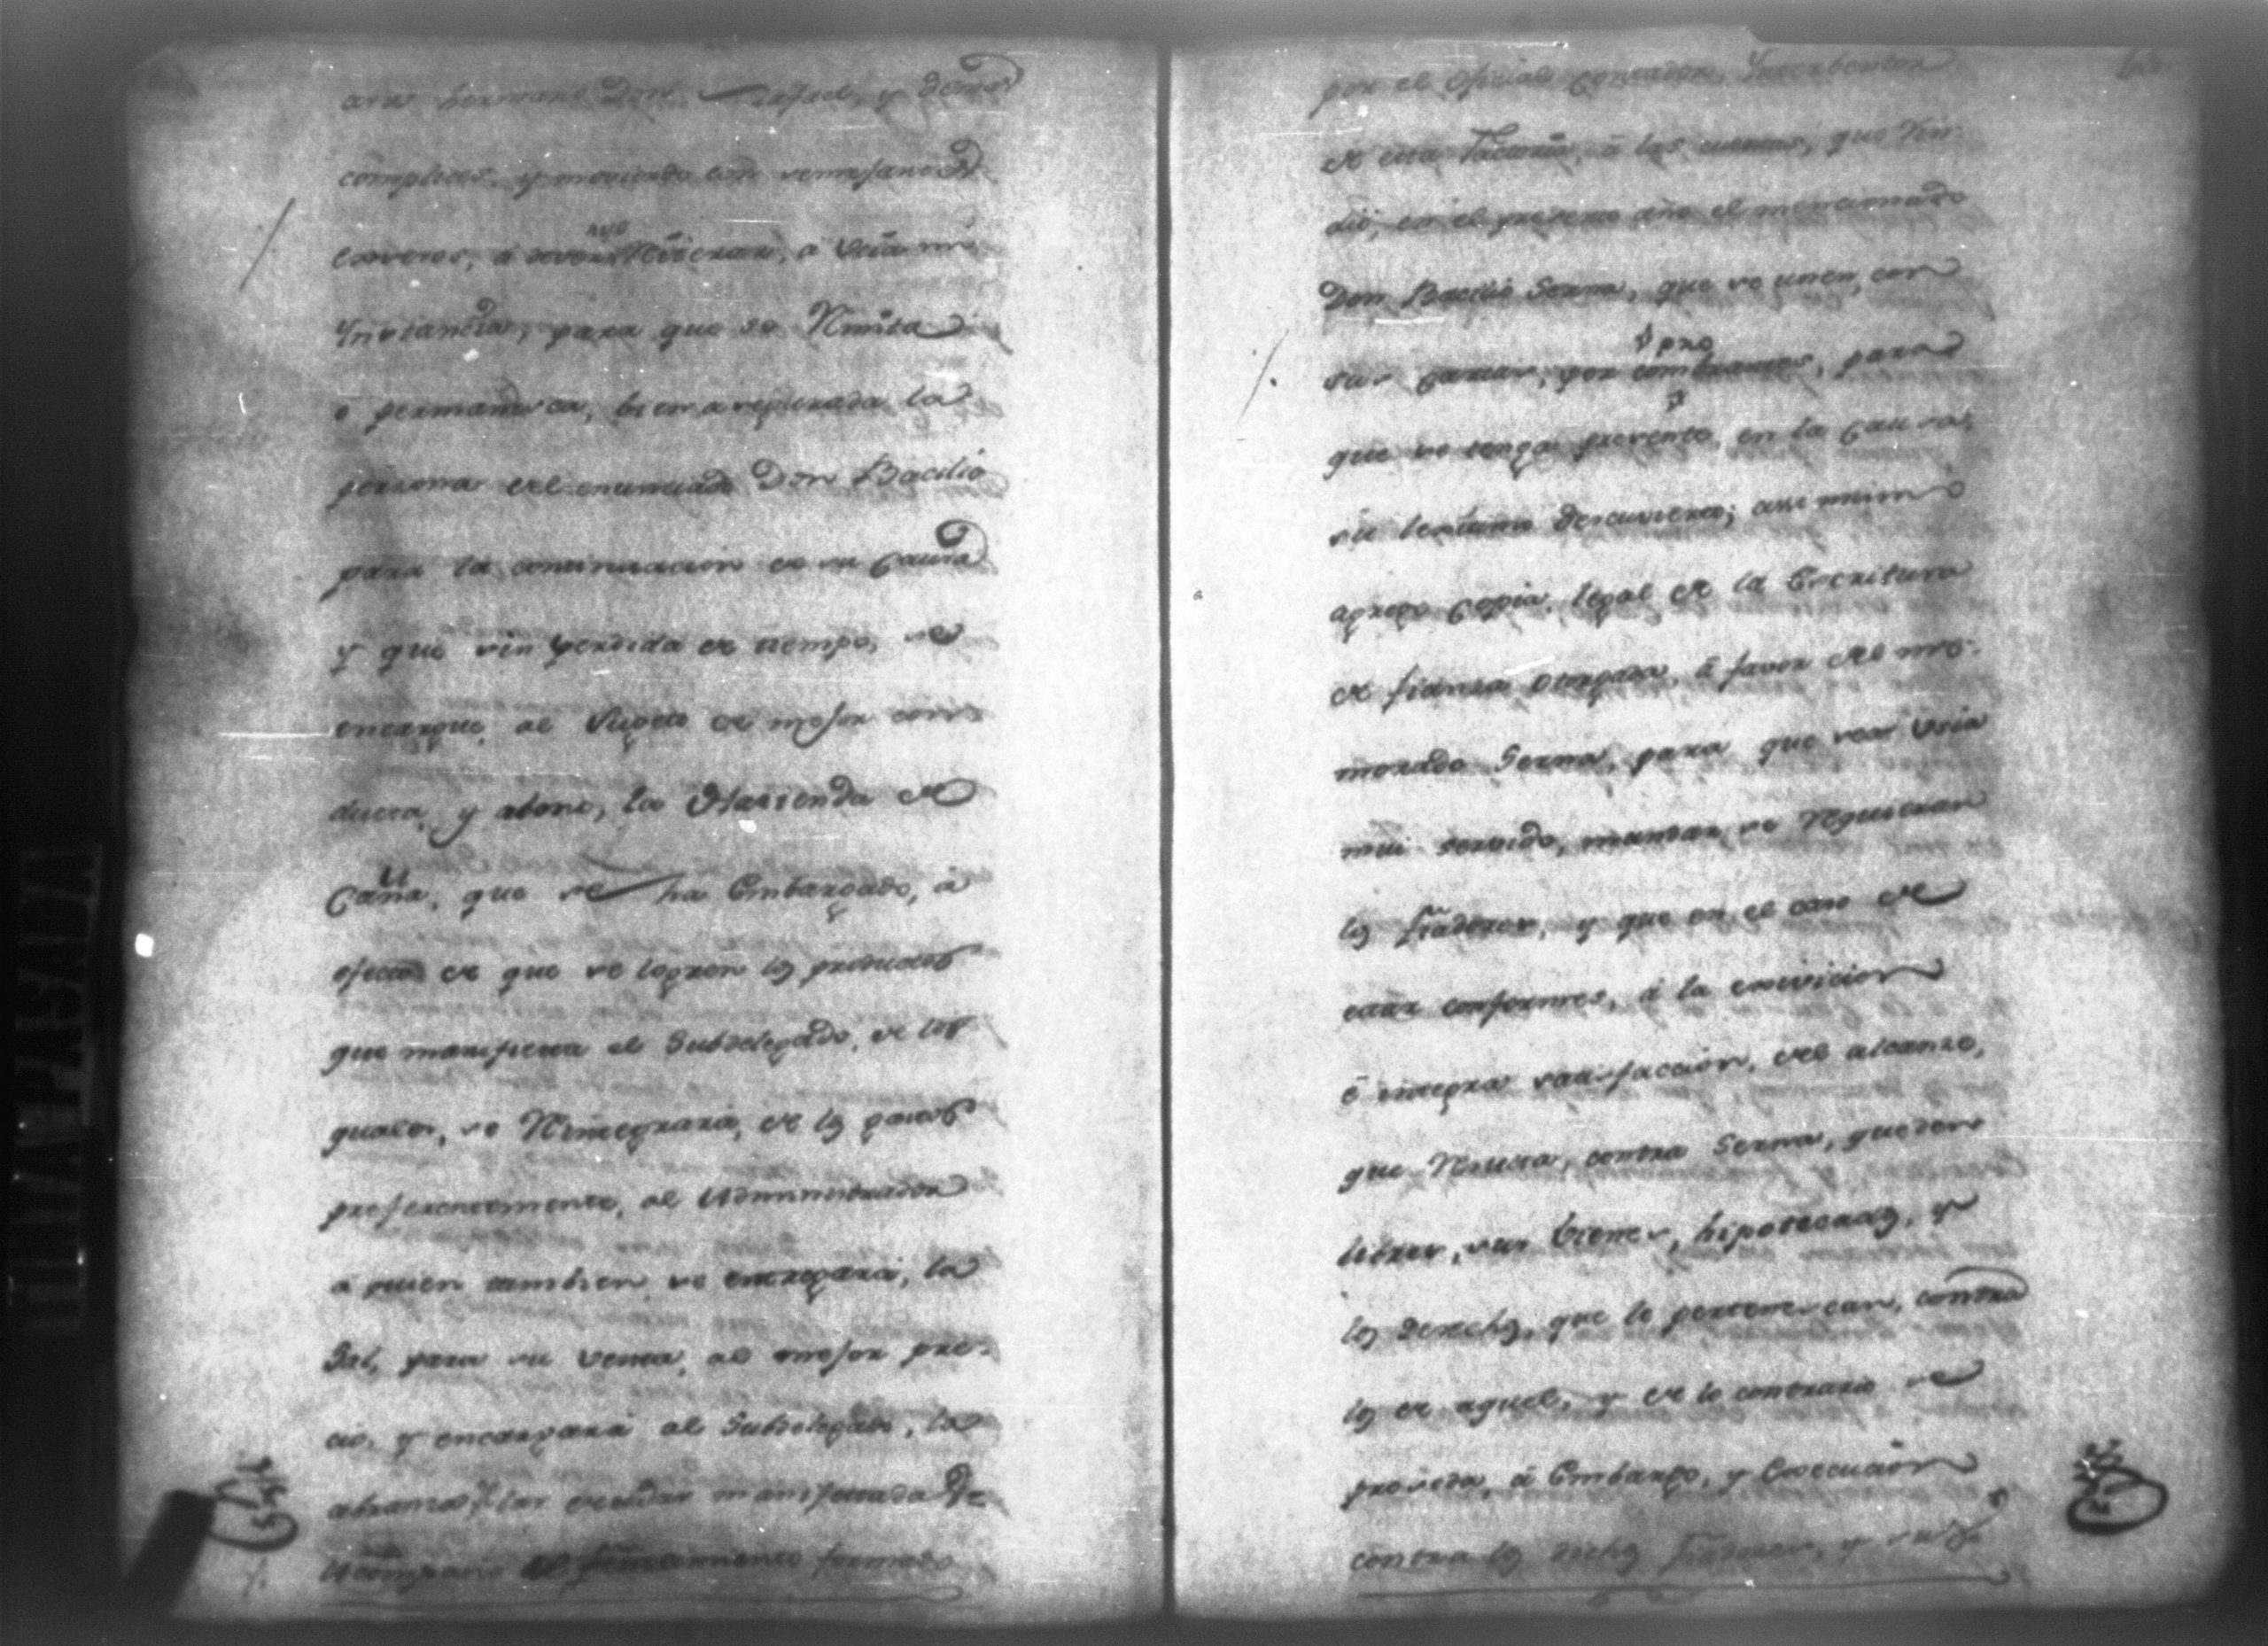 a su hermano Don Rafael, y demas
complices, y moviendo con semejantes
 á Usia mi
Ynstancia, para que se Rmita
o permanesca, bien asegurada la
persona del enunciado Don Bacilio
para la continuacion de su Causa
y que sin perdida de tiempo, se
encargue, al Sugeto de mejor con-
ducta, y abono, la Hazienda de
Caña, que se ha Embargado, á
efecto de que se logren los productos
que manifiesta el Subdelegado, de los
quales, se Rintegrará, de los gastos
preferentemente, al Administrador
á quien tambien se entregará, la
Sal, para su venta, al mejor pre-
cio, y encargará al Subdelegado, la
 manifestada
Acompaño formado
por el Oficial Contador, Ynterbentor
de esta Factoria, á las cuentas, que rin-
dió, en el presente año el mencionado
Don Bacilio Serna, que se unen, con
sus Cartas, para
que se tenga presente, en la Causa,
su descuvierto; assi mismo
agrego Copia, legal de la Escritura
de fianza otorgada, á favor del me-
morado Serna, para que sea Usia
mui servido, mandar, se Rquieran
los fiadores, y que en el caso de
estar conformes, á la exivicion
é integra satisfaccion, del alcanze,
que Rsulta, contra Serna, queden
libres, sus bienes, hipotecados, y
los Derechos, que le pertenescan, contra
los de aquel, y de lo contrario se
proceda, á Embargo, y Execucion
contra los dichos fiadores, y sus